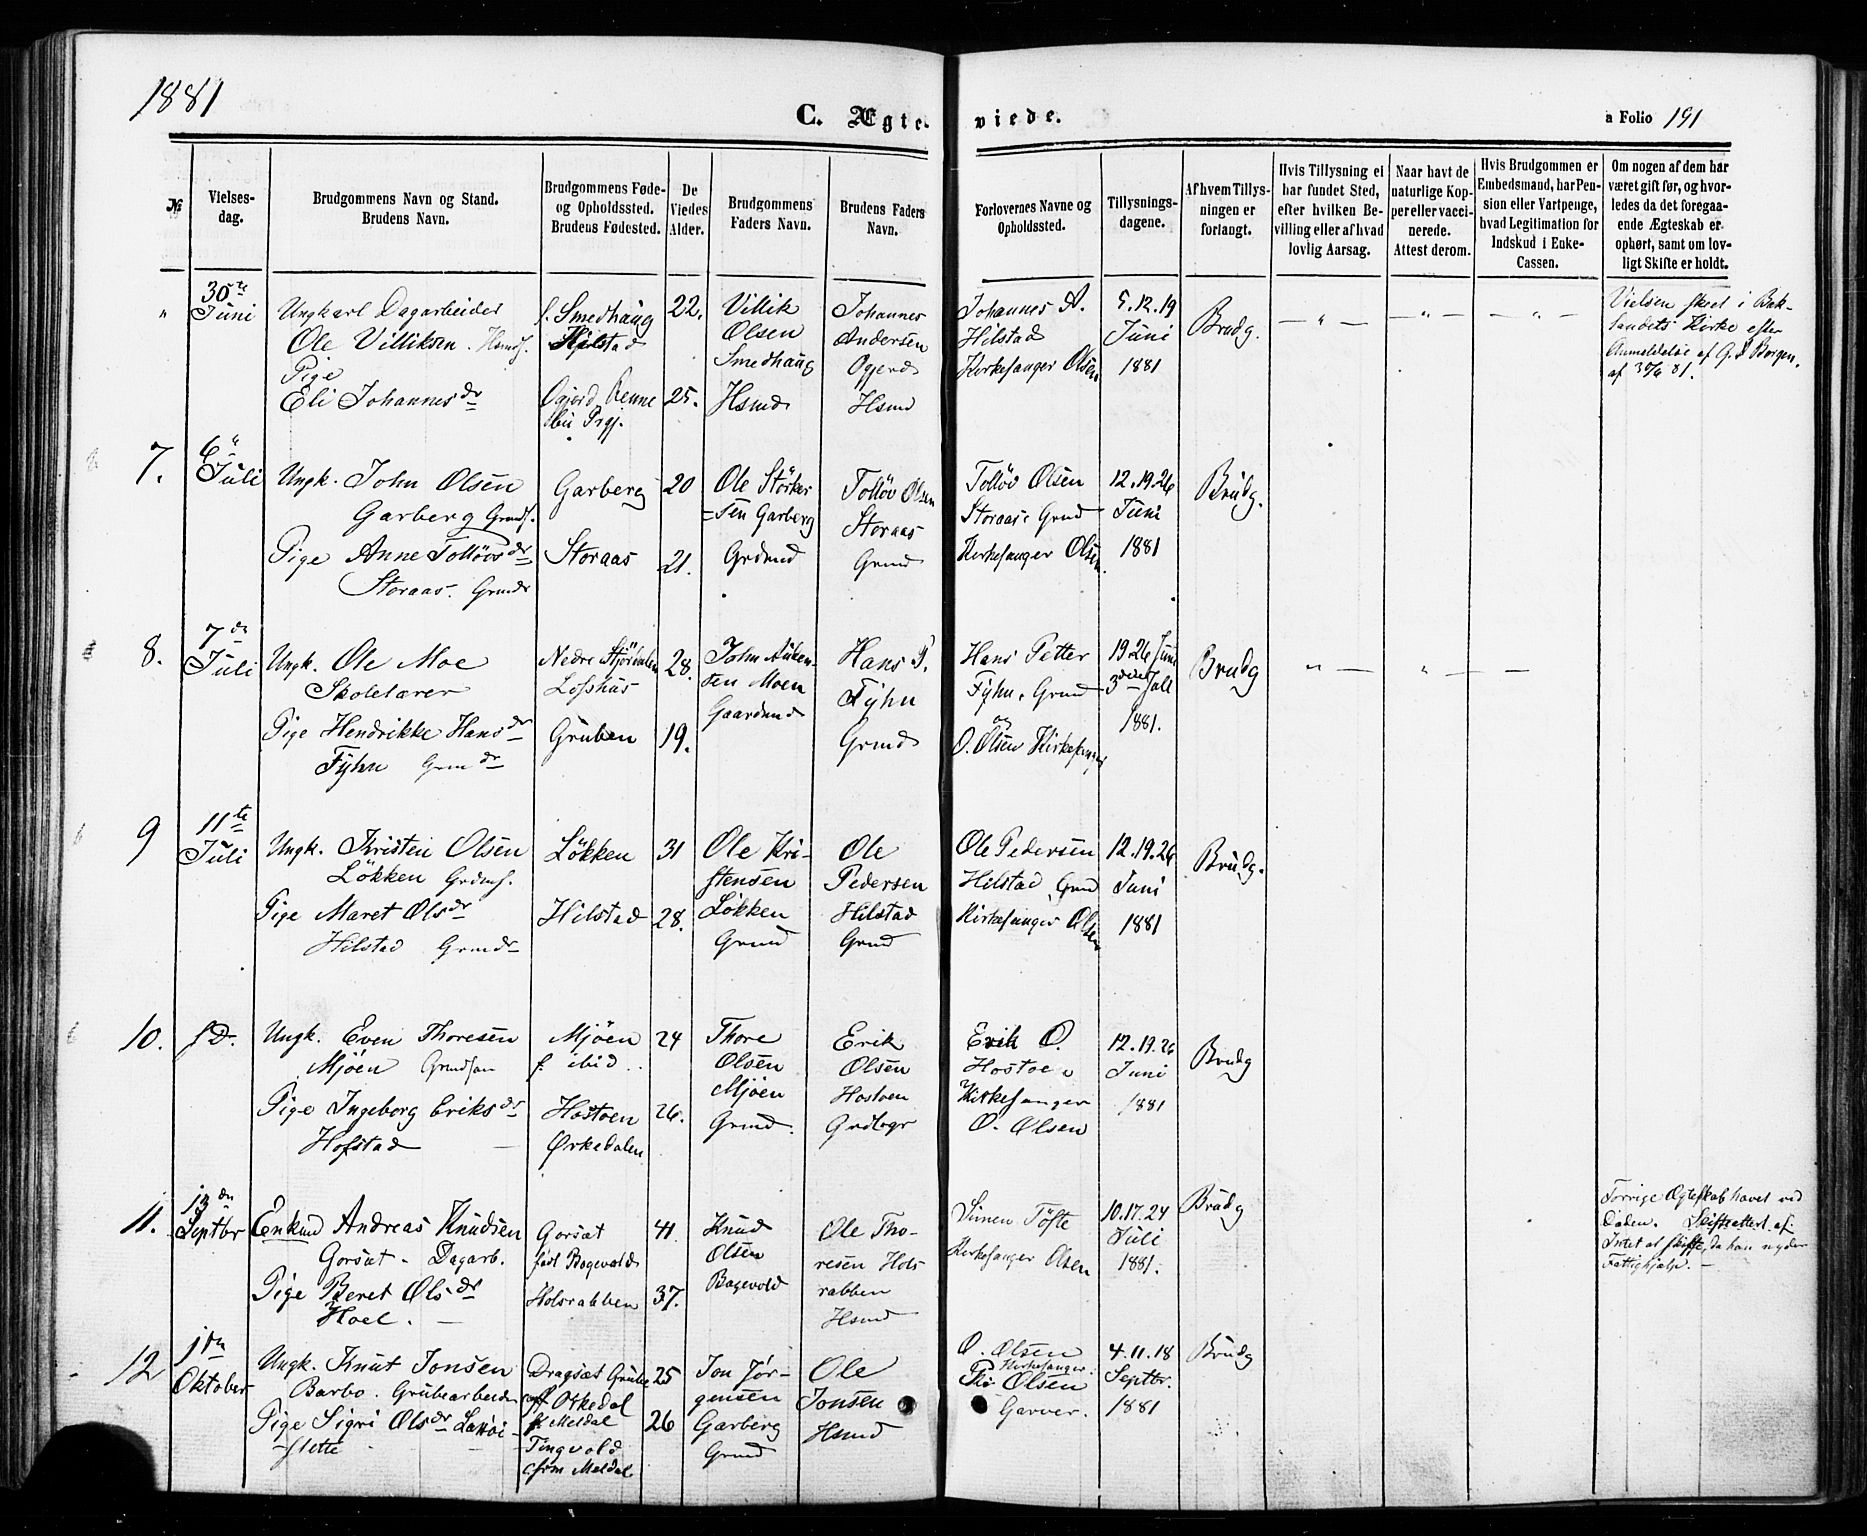 1881
C. Ægteviede.
a Folio 191
№
Vielsesdag.
Brudgommens Navn og Stand.
Brudens Navn.
Brudgommens Føde-
og Opholdssted.
Brudens Fødested.
De
Viedes
Alder.
Brudgommens
Faders Navn.
Brudens Faders
Navn.
Forlovernes Navne og
Opholdssted.
Tillysnings-
dagene.
Af hvem Tillys-
ningen er
forlangt.
Hvis Tillysning ei
har fundet Sted,
efter hvilken Be-
villing eller af hvad
lovlig Aarsag.
Naar havt de
naturlige Kop-
per eller vacci-
nerede.
Attest derom.
Hvis Brudgommen er
Embedsmand, har Pen-
sion eller Vartpenge,
hvad Legitimation for
Indskud i Enke-
Cassen.
Om nogen af dem har
været gift før, og hvor-
ledes da det foregaa-
ende Ægteskab er
ophørt, samt om lov-
ligt Skifte er holdt.
"
30te
Juni
Ungkarl Dagarbeider
Ole Villiksen. Hsmds.
Pige
Eli Johannesdr
f. Smedhaug
Hilstad
Ogjerd Renne
bu Prgj.
22.
25.
Villik
Olsen
Smedhaug
Hsmd
Johannes
Andersen
Ogjerd
Hsmd
Johannes A.
Hilstad
Kirkesanger Olsen
5.12.19
Juni
1881
Brudg.
— " —
— " —
— " —
Vielsen skeet i Bak-
landets Kirke efter
Anmeldelse af G. d Borgen.
af 30/6 81.
7.
6"
Juli
Ungk. John Olsen
Garberg Grmds.
Pige Anne Tolløvsdr
Storaas. Grmdr
Garberg
Storaas
20
21.
Ole Störker
=sen Garberg
Grdmd
Tolløv Olsen
Storaas
Grmd
Tolløv Olsen
Storaas. Grmd
Kirkesanger Olsen.
12.19.26
Juni
1881
Brudg.
8.
7de
Juli
Ungk. Ole Moe
Skolelærer
Pige Hendrikke Hansdr
Fyhn Grmdr
Nedre Stjördalen
Lofshus
Gruben
28.
19.
John Auken-
sen Moen
Gaardmd
Hans P.
Fyhn
Grmd
Hans Petter
Fyhn, Grmd
og
O. Olsen Kirkesanger
19.26 Juni
3die Juli
1881.
Brudg
" —
" —
—
9
11te
Juli
Ungk. Kristen Olsen
Løkken Grdms.
Pige Maret Olsdr
Hilstad Grmdr
Løkken
Hilstad
31
28.
Ole Kri-
stensen
Løkken
Grmd
Ole
Pedersen
Hilstad
Grmd
Ole Pedersen
Hilstad, Grmd
Kirkesanger Olsen
12.19.26
Juni
1881
Brudg.
10.
s D.
Ungk. Even Thoresen
Mjøen Grmdsøn
Pige Ingeborg Eriksdr
Hofstad —
Mjøen
f. ibid.
Hostoen
Ørkedalen
24
26.
Thore
Olsen
Mjøen
Grmd.
Erik
Olsen
Hostoen
Grdbgr
Erik O.
Hostoe,
Kirkesanger
O. Olsen
12.19.26
Juni
1881
Brudg
11.
13de
Septbr
Enkmd Andreas Knudsen
Gorsæt - Dagarb.
Pige Beret Olsdr
Hoel. —
Gorsæt
født Bogevold
Holsrabben
41.
37.
Knud
Olsen
Bogevold
Ole Tho-
resen Hols
rabben
Hsmd
Simen Töfte
Kirkesanger Olsen
10.17.24
Juli
1881.
Brudg
Forrige Ægteskab hævet ved
Døden. Skifteattest af
Intet at skifte, da han nyder
Fattighjælp. —
12
1ste
Oktober
Ungk. Knut Jonsen
Barbo. Grubearbeider
Pige Sigri Olsdr
-slette
Dragsæt Grube
Orkedal
f. Meldal
Tingvold
Meldal
25
26
Jon Jör-
gensen
Garberg
Grmd
Ole
Jonsen
Hsmd
O. Olsen
Kirkesanger.
Olsen
Garver.
4.11.18
Septbr.
1881
Brudg